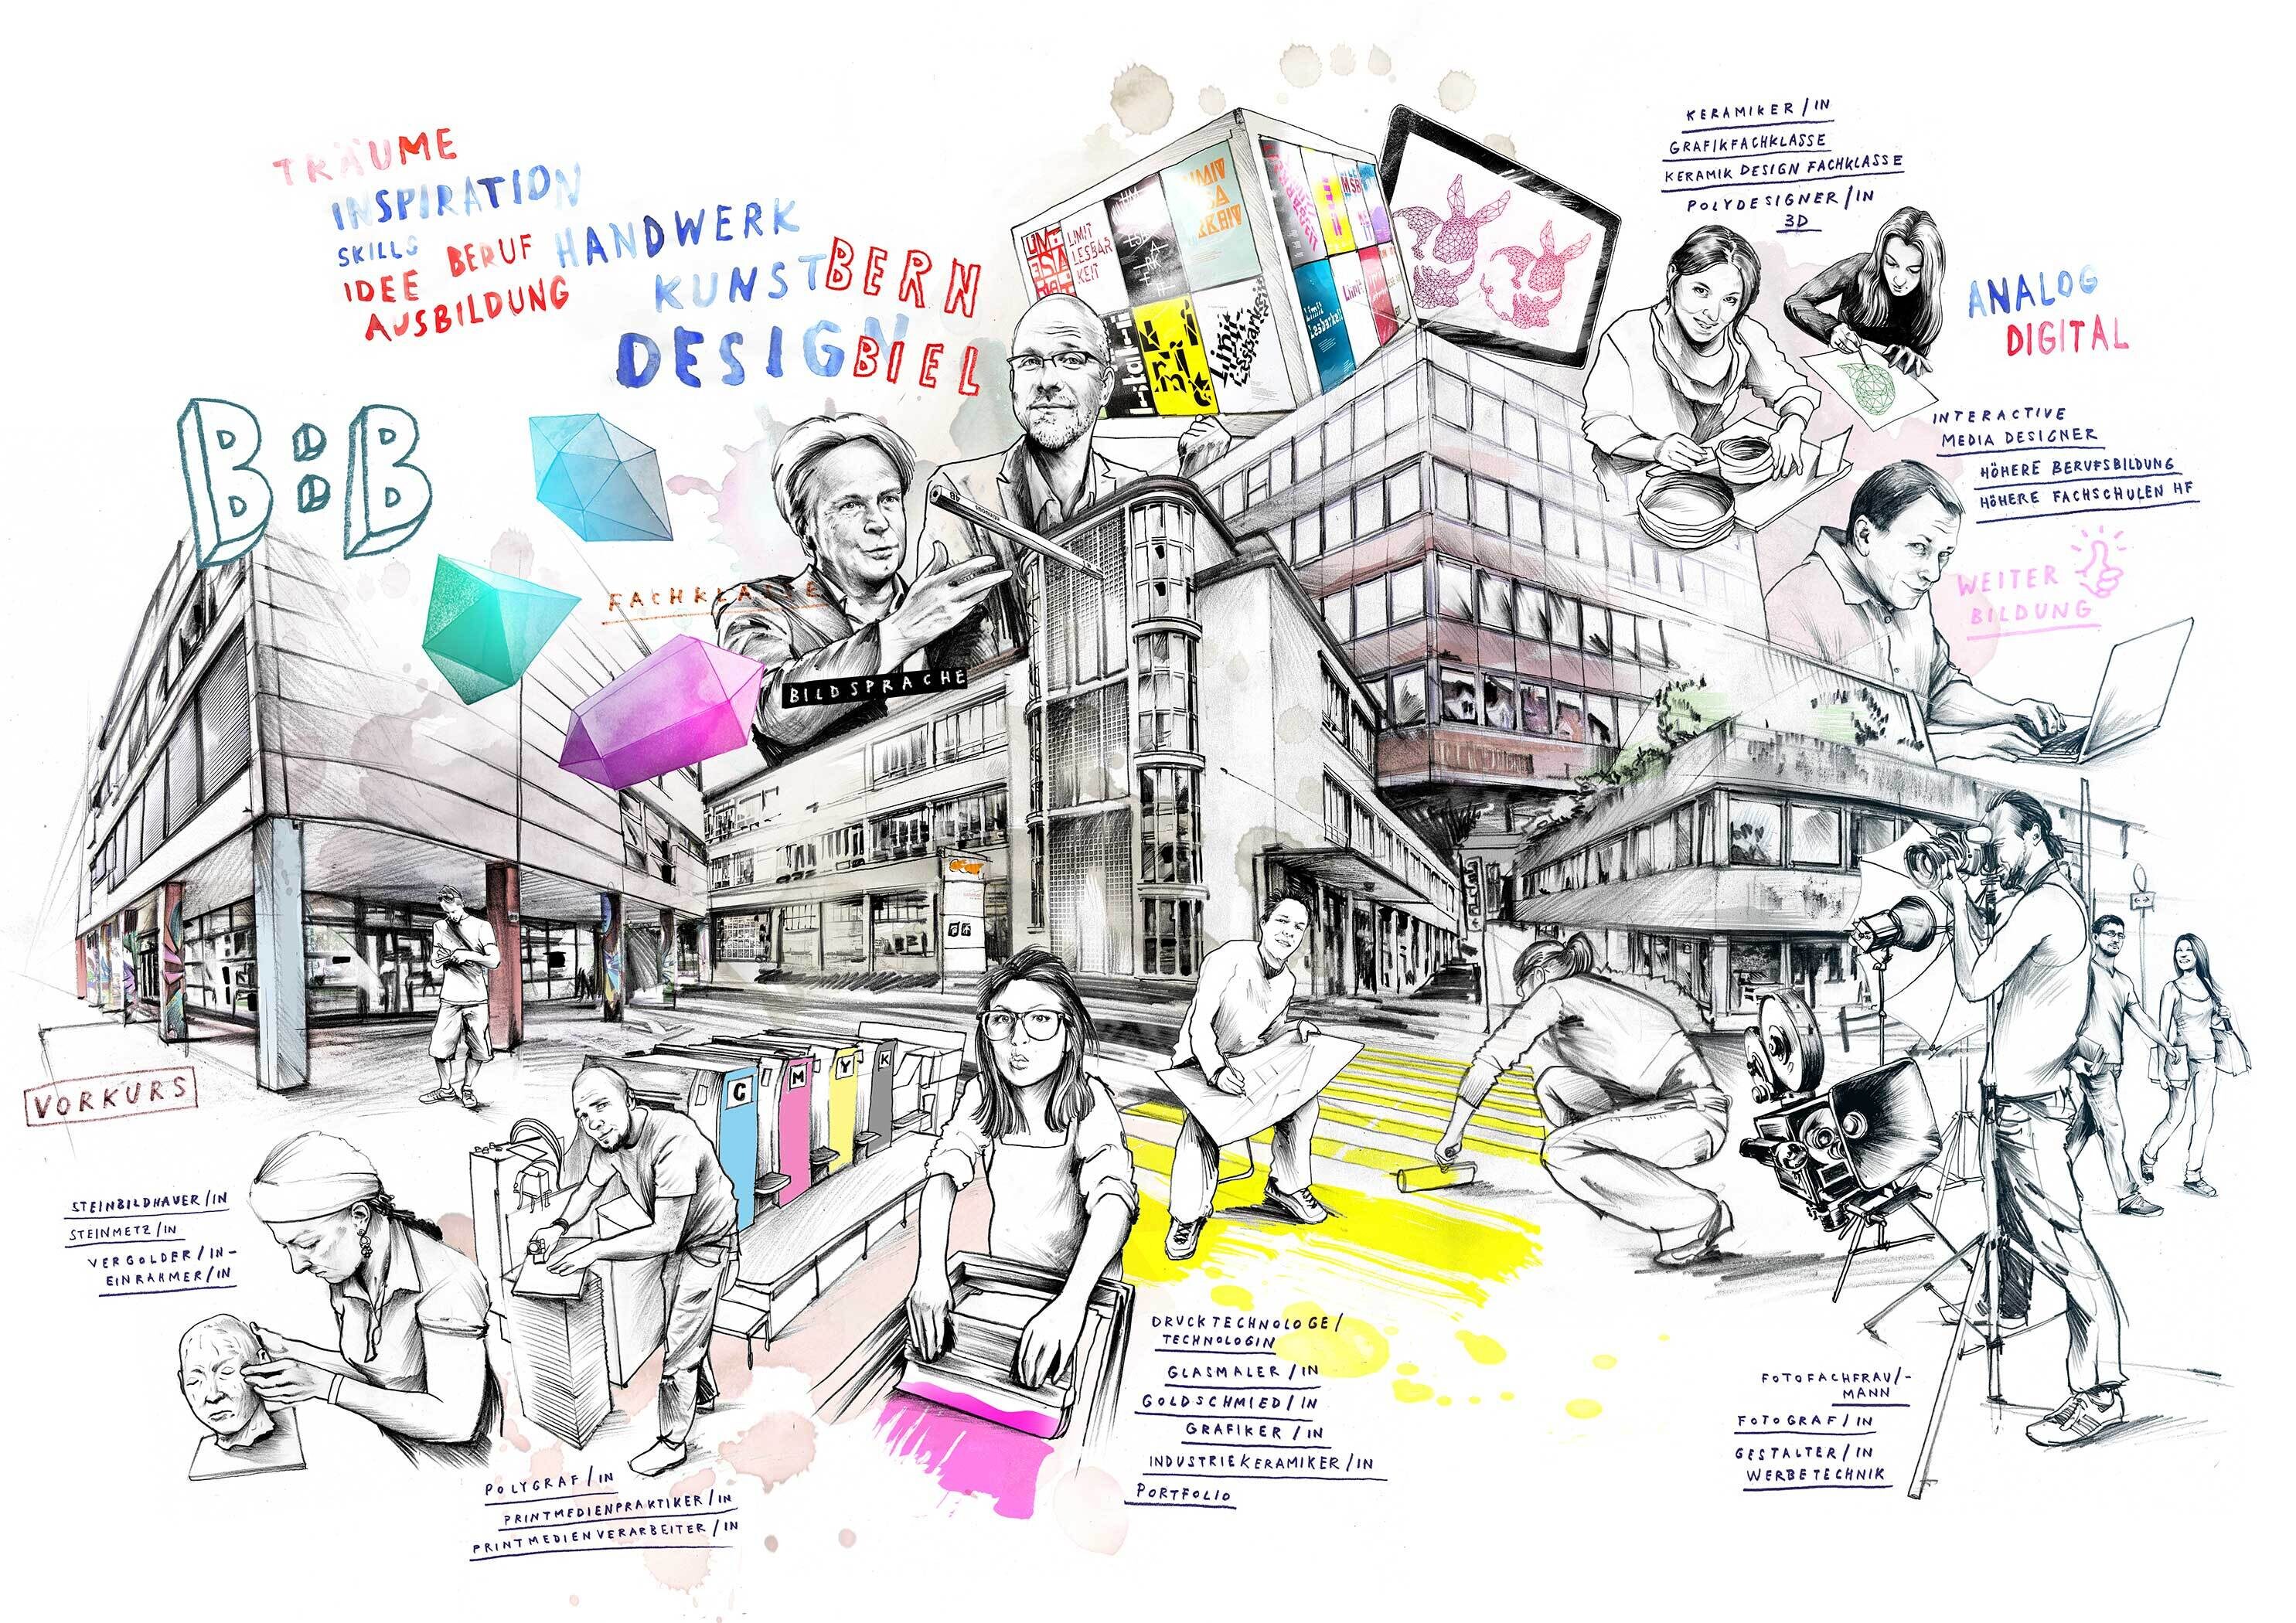 TRÄUME
INSPIRATION
SKILLS BERUF HANDWERK
IDEE
AUSBILDUNG
KUNST BERN
DESIGN BIEL
B:B
FACHKLASSE
BILDSPRACHE
LIMIT
LESBAR
KEIT
KERAMIKER/IN
GRAFIKFACHKLASSE
KERAMIK DESIGN FACHKLASSE
POLYDESIGNER/IN
3D
ANALOG
DIGITAL
INTERACTIVE
MEDIA DESIGNER
HÖHERE BERUFSBILDUNG
HÖHERE FACHSCHULEN HF
WEITER
BILDUNG
VORKURS
C M Y K
STEINBILDHAUER/IN
STEINMETZ/IN
VERGOLDER/IN-
EINRAHMER/IN
POLYGRAF/IN
PRINTMEDIENPRAKTIKER/IN
PRINTMEDIENVERARBEITER/IN
DRUCKTECHNOLOGE/
TECHNOLOGIN
GLASMALER/IN
GOLDSCHMIED/IN
GRAFIKER/IN
INDUSTRIEKERAMIKER/IN
PORTFOLIO
FOTOFACHFRAU/-
MANN
FOTOGRAF/IN
GESTALTER/IN
WERBETECHNIK